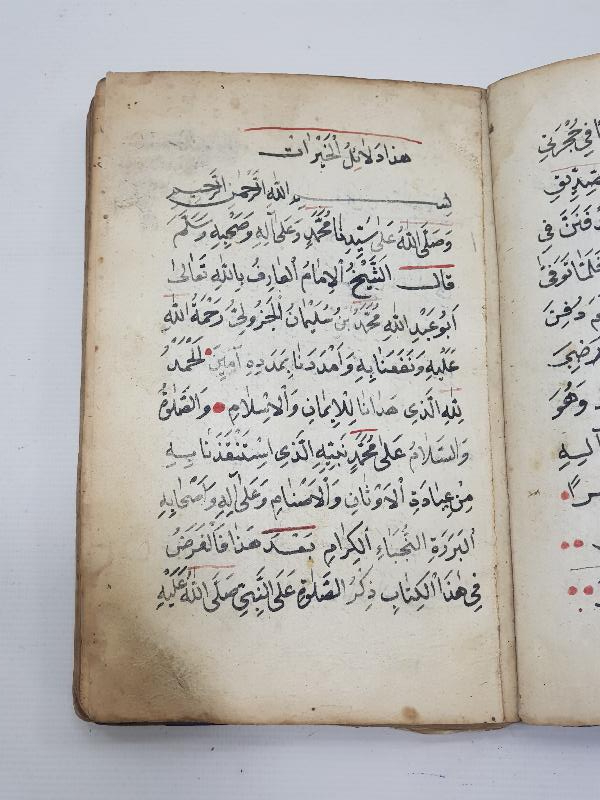 هذا دلائل الخيرات
بسم الله الرحمن الرحيم
وصلى الله على سيدنا محمد وعلى آله وصحبه وسلم
قال الشيخ الامام العارف بالله تعالى
ابو عبد الله محمد بن سليمان الجزولى رحمة الله
عليه ونفعنا به وامدنا بمدده آمين الحمد
لله الذى هدانا للايمان والاسلام والصلوة
والسلام على محمد نبيه الذى استنقذنا به
من عبادة الاوثان والاصنام وعلى آله واصحابه
البررة النجباء الكرام بعد هذا فالغرض
فى هذا الكتاب ذكر الصلوة على النبى صلى الله عليه
فى حجرتى
دفن فى
توفى
دفن
وهو
آله